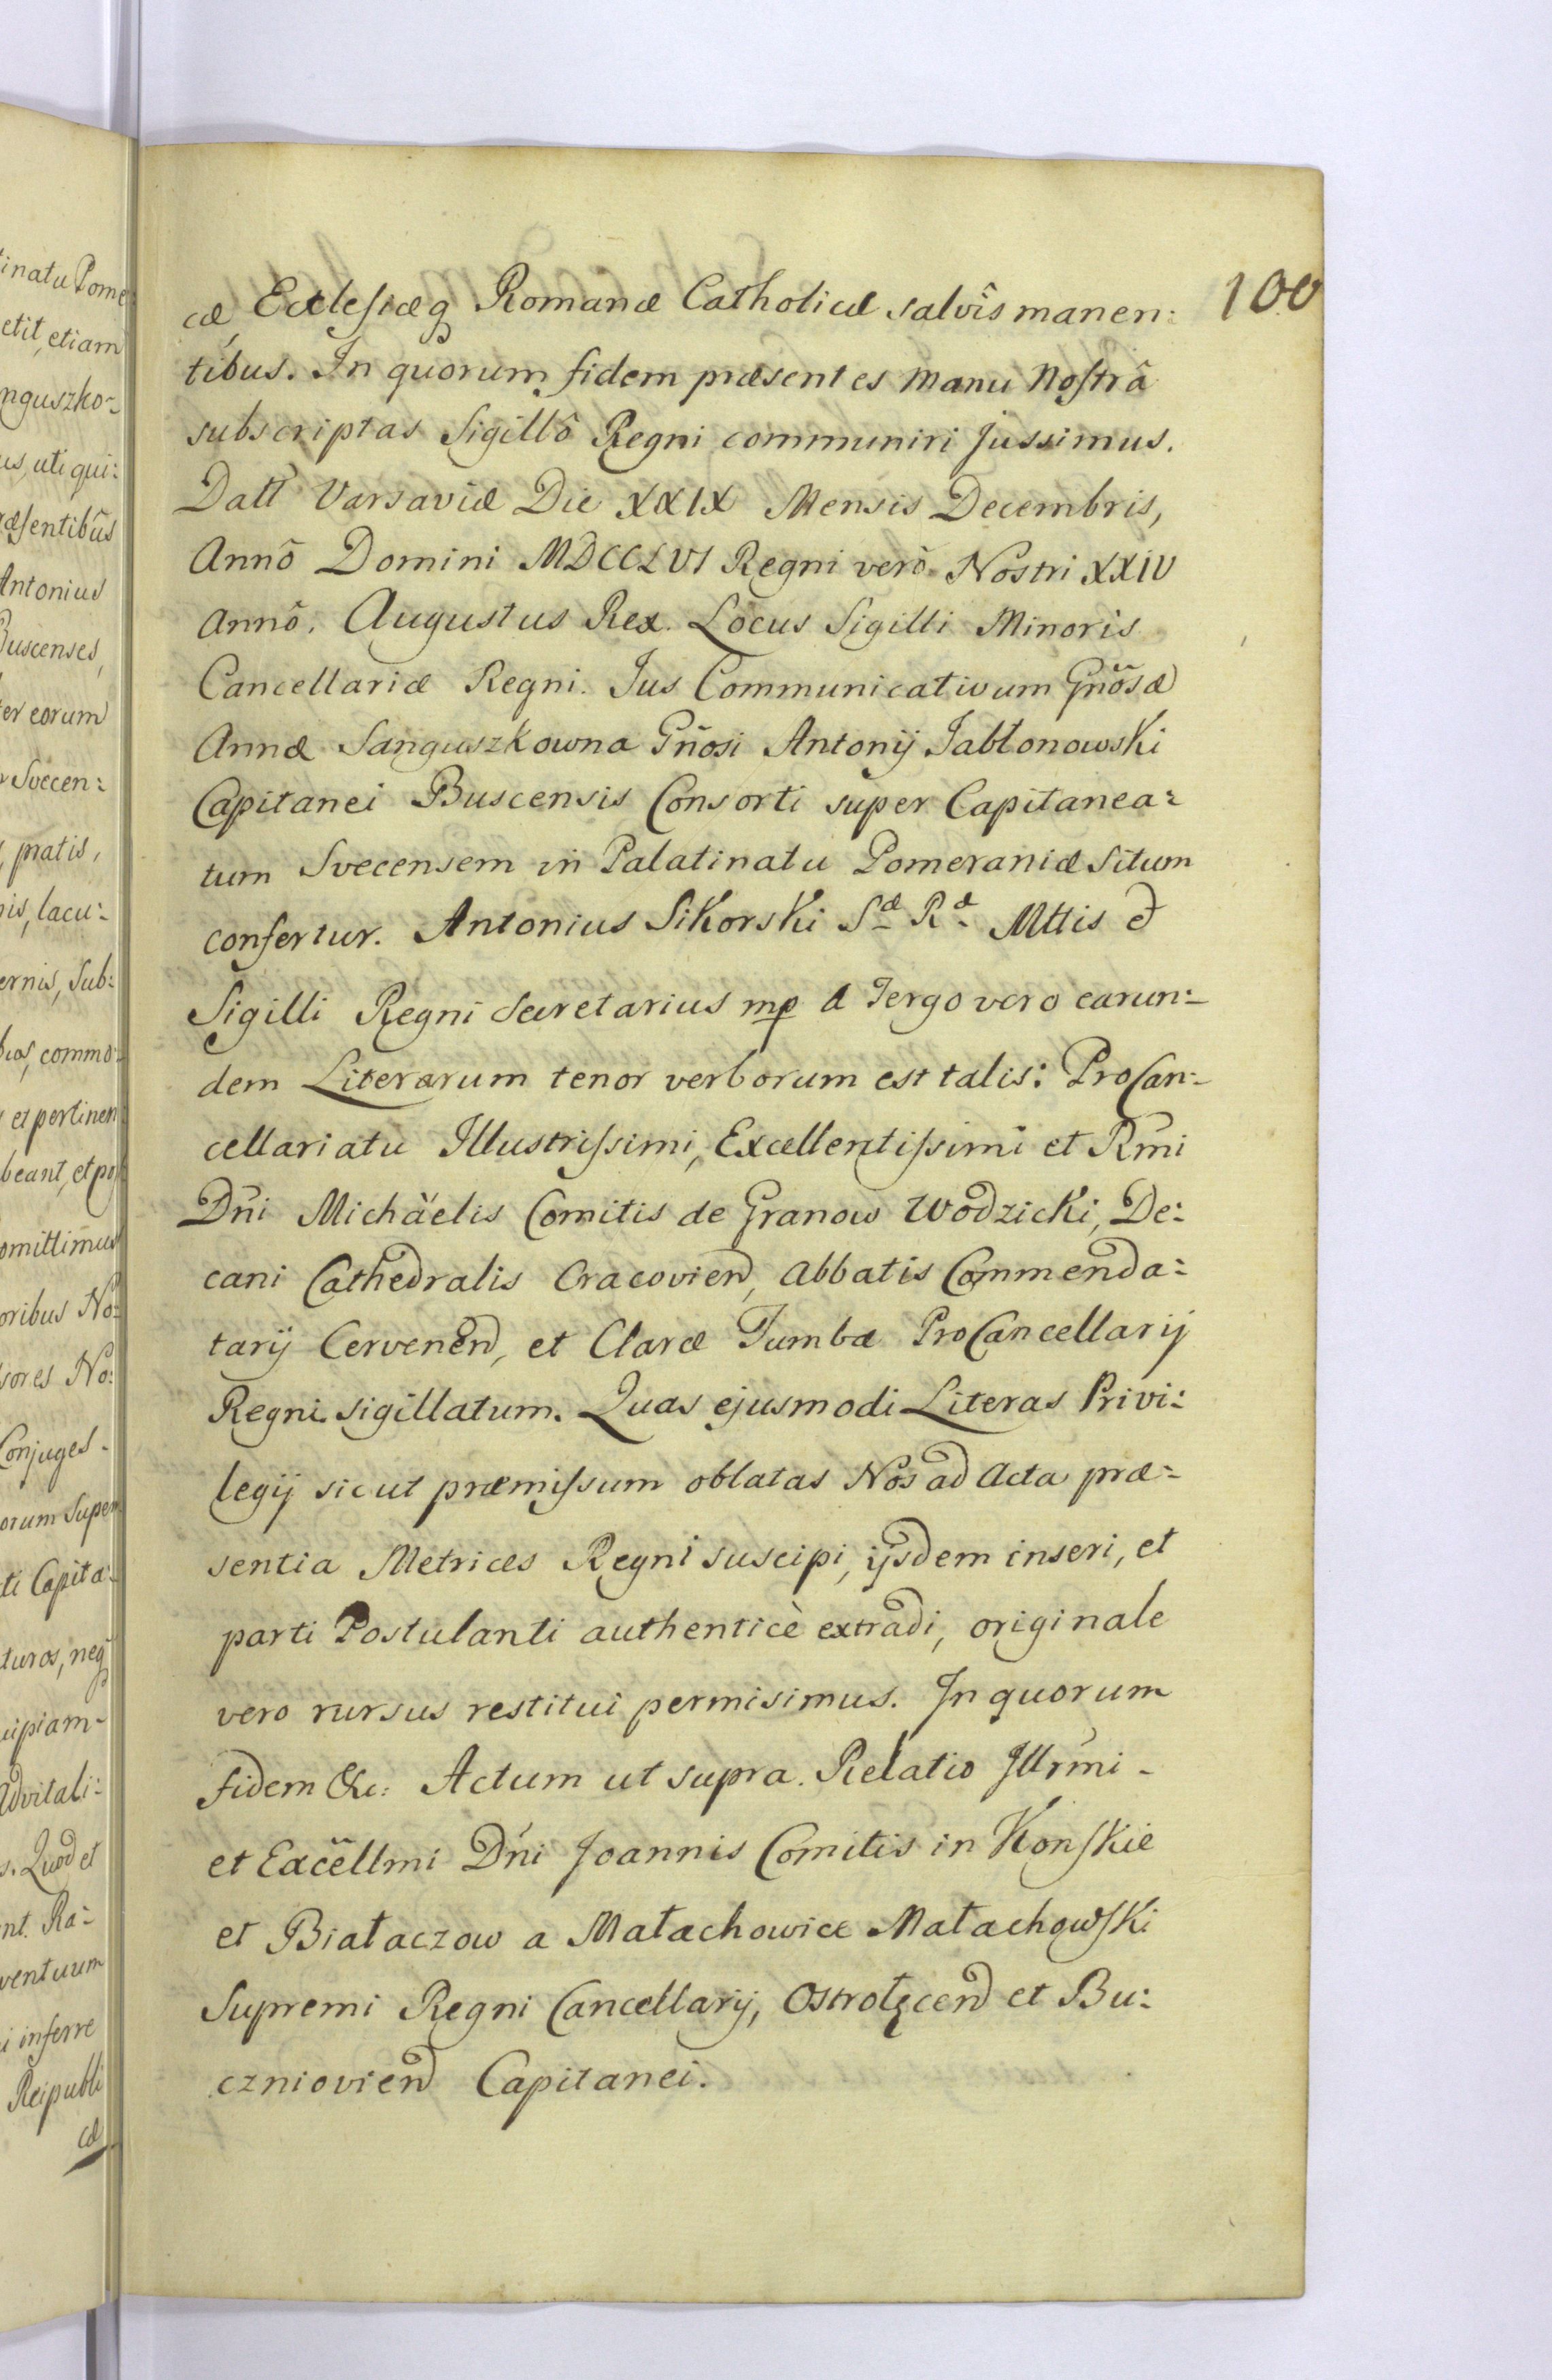 100
cæ, Ecclesiæq Romanæ Catholicæ salvîs manen:
tibus. In quorum fidem præsentes Manu Nostrâ
subscriptas Sigillô Regni communiri jussimus.
Datt Varsaviæ Die XXIX Mensis Decembris,
Annô Domini MDCCLVI Regni verò Nostri XXIV
Annô. Augustus Rex. Locus Sigilli Minoris
Cancellariæ Regni. Jus Communicativum Gñosæ
Annæ Sanguszkowna Gñosi Antonij Jabłonowski
Capitanei Buscensis Consorti super Capitanea:
tum Svecensem in Palatinatu Pomeraniæ Situm
confertur. Antonius Sikorski Sæ Ræ Mttis &
Sigilli Regni Secretarius mp A Tergo vero earun:
dem Literarum tenor verborum est talis: ProCan:
cellariatu Illustrissimi, Excellentissimi et Rm̃i
Dñi Michäelis Comitis de Granow Wodzicki, De:
cani Cathedralis Cracovien, Abbatis Commenda:
tarij Cervenen, et Claræ Tumbæ ProCancellarij
Regni sigillatum. Quas ejusmodi Literas Privi:
legij sicut præmissum oblatas Nos ad Acta præ:
sentia Metrices Regni suscipi, ijsdem inseri, et
parti Postulanti authenticè extradi, originale
vero rursus restitui permisimus. In quorum
fidem &c: Actum ut supra. Relatio Illrmi
et Excellmi Dñi Joannis Comitis in Konskie
et Białaczow a Małachowice Małachowski
Supremi Regni Cancellarij, Ostrołęcen et Bu:
czniovien Capitanei.
inatu Pome
etit, etiam
nguszko:
us, uti qui:
æsentibûs
Antonius
Buscenses,
er eorum
Svecen:
pratis,
is, lacu:
ernis, Sub:
commo:
et pertinen
beant, et po
omittimus
oribus No:
sores No:
Conjuges
orum Super
ti Capita:
turos, neq
cipiam
Advitali:
s. Quod et
nt. Ra:
ventuum
i inferre
Reipubli
cæ